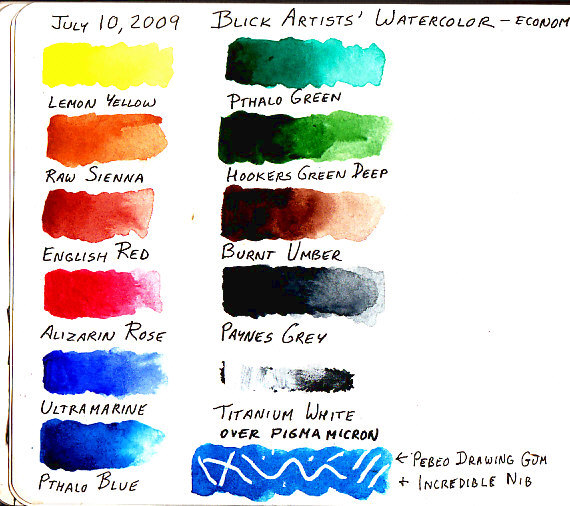 JULY 10, 2009 BLICK ARTISTS' WATERCOLOR - ECONOM
LEMON YELLOW
PTHALO GREEN
RAW SIENNA
HOOKERS GREEN DEEP
ENGLISH RED
BURNT UMBER
ALIZARIN ROSE
PAYNES GREY
ULTRAMARINE
TITANIUM WHITE
OVER PIGMA MICRON
PTHALO BLUE
← PEBEO DRAWING GUM
+ INCREDIBLE NIB